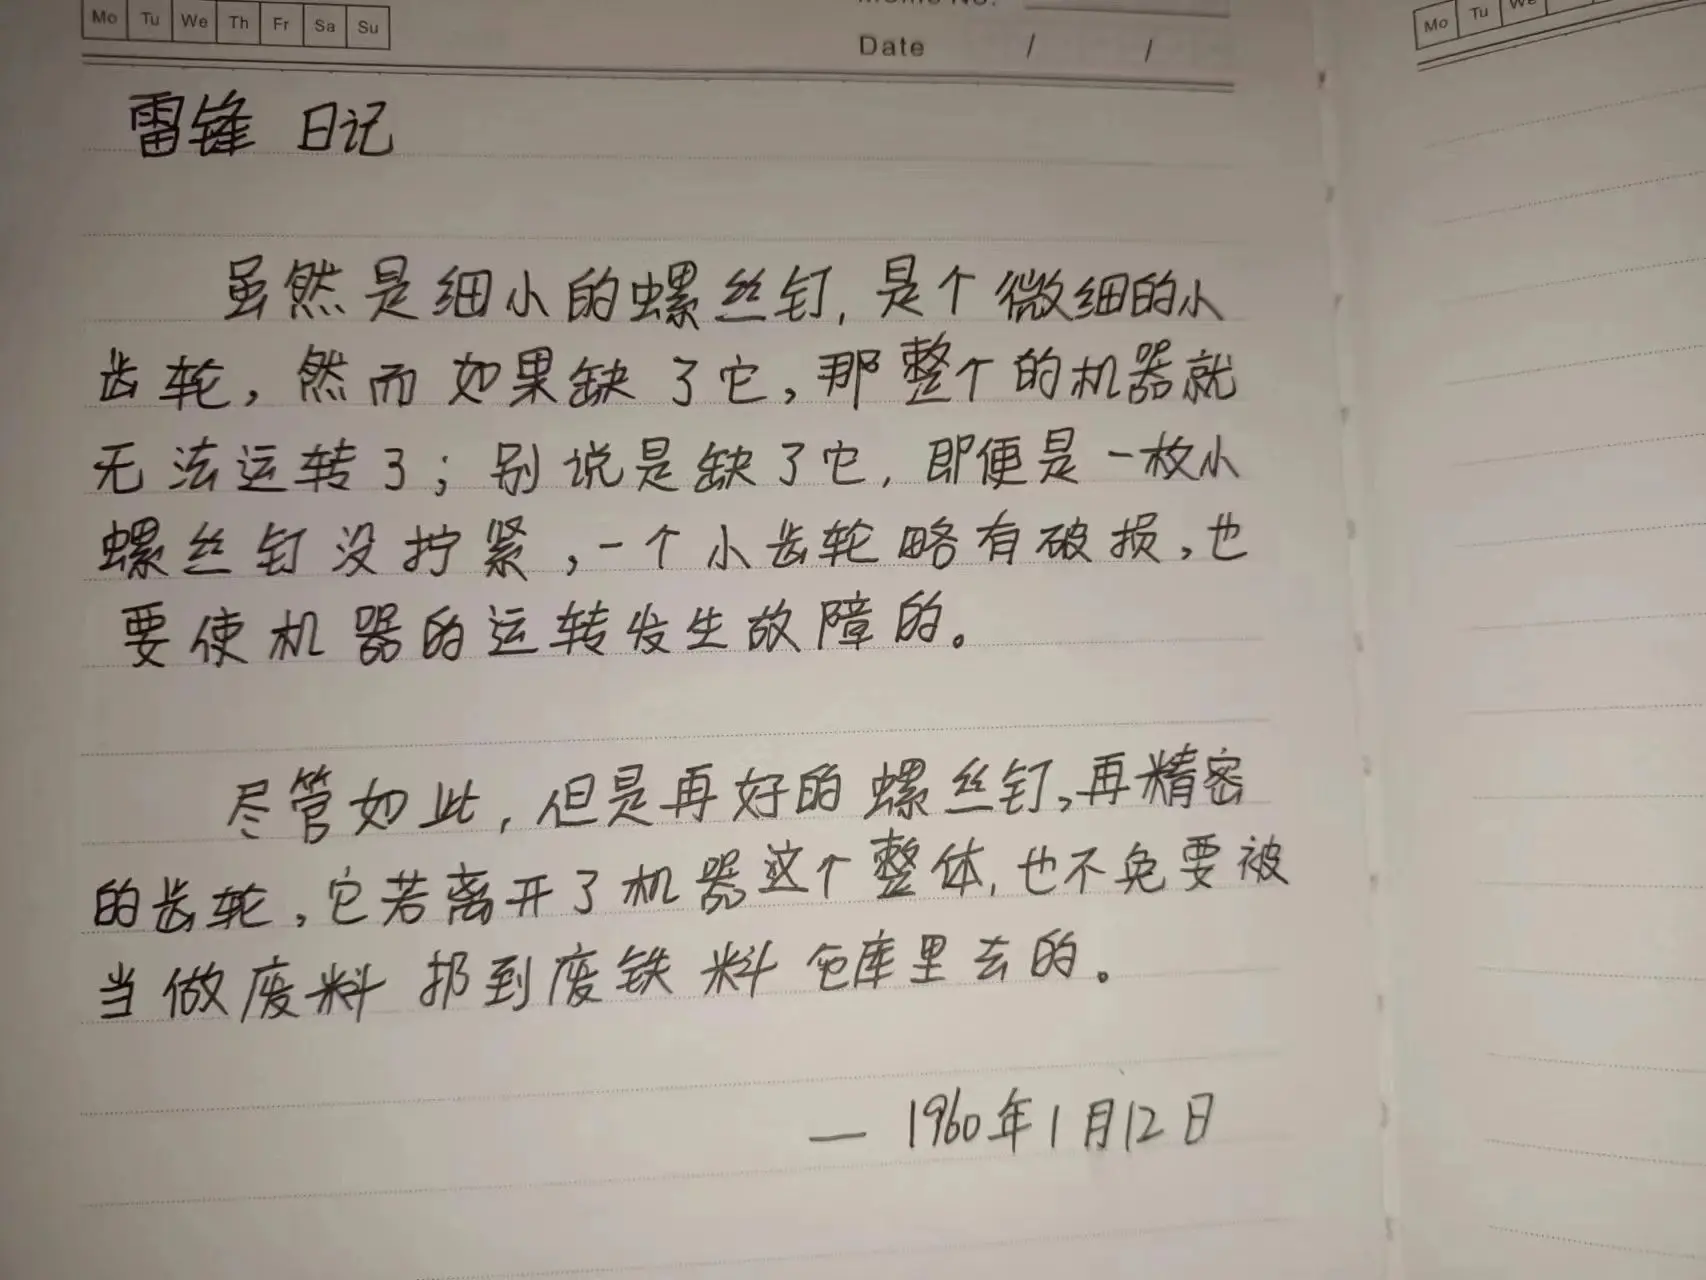 Mo Tu We Th Fr Sa Su
Date / /
Mo Tu We
雷锋 日记
虽然是细小的螺丝钉,是个微细的小
齿轮,然而如果缺了它,那整个的机器就
无法运转了;别说是缺了它,即便是一枚小
螺丝钉没拧紧,一个小齿轮略有破损,也
要使机器的运转发生故障的。
尽管如此,但是再好的螺丝钉,再精密
的齿轮,它若离开了机器这个整体,也不免要被
当做废料扔到废铁料仓库里去的。
— 1960年1月12日